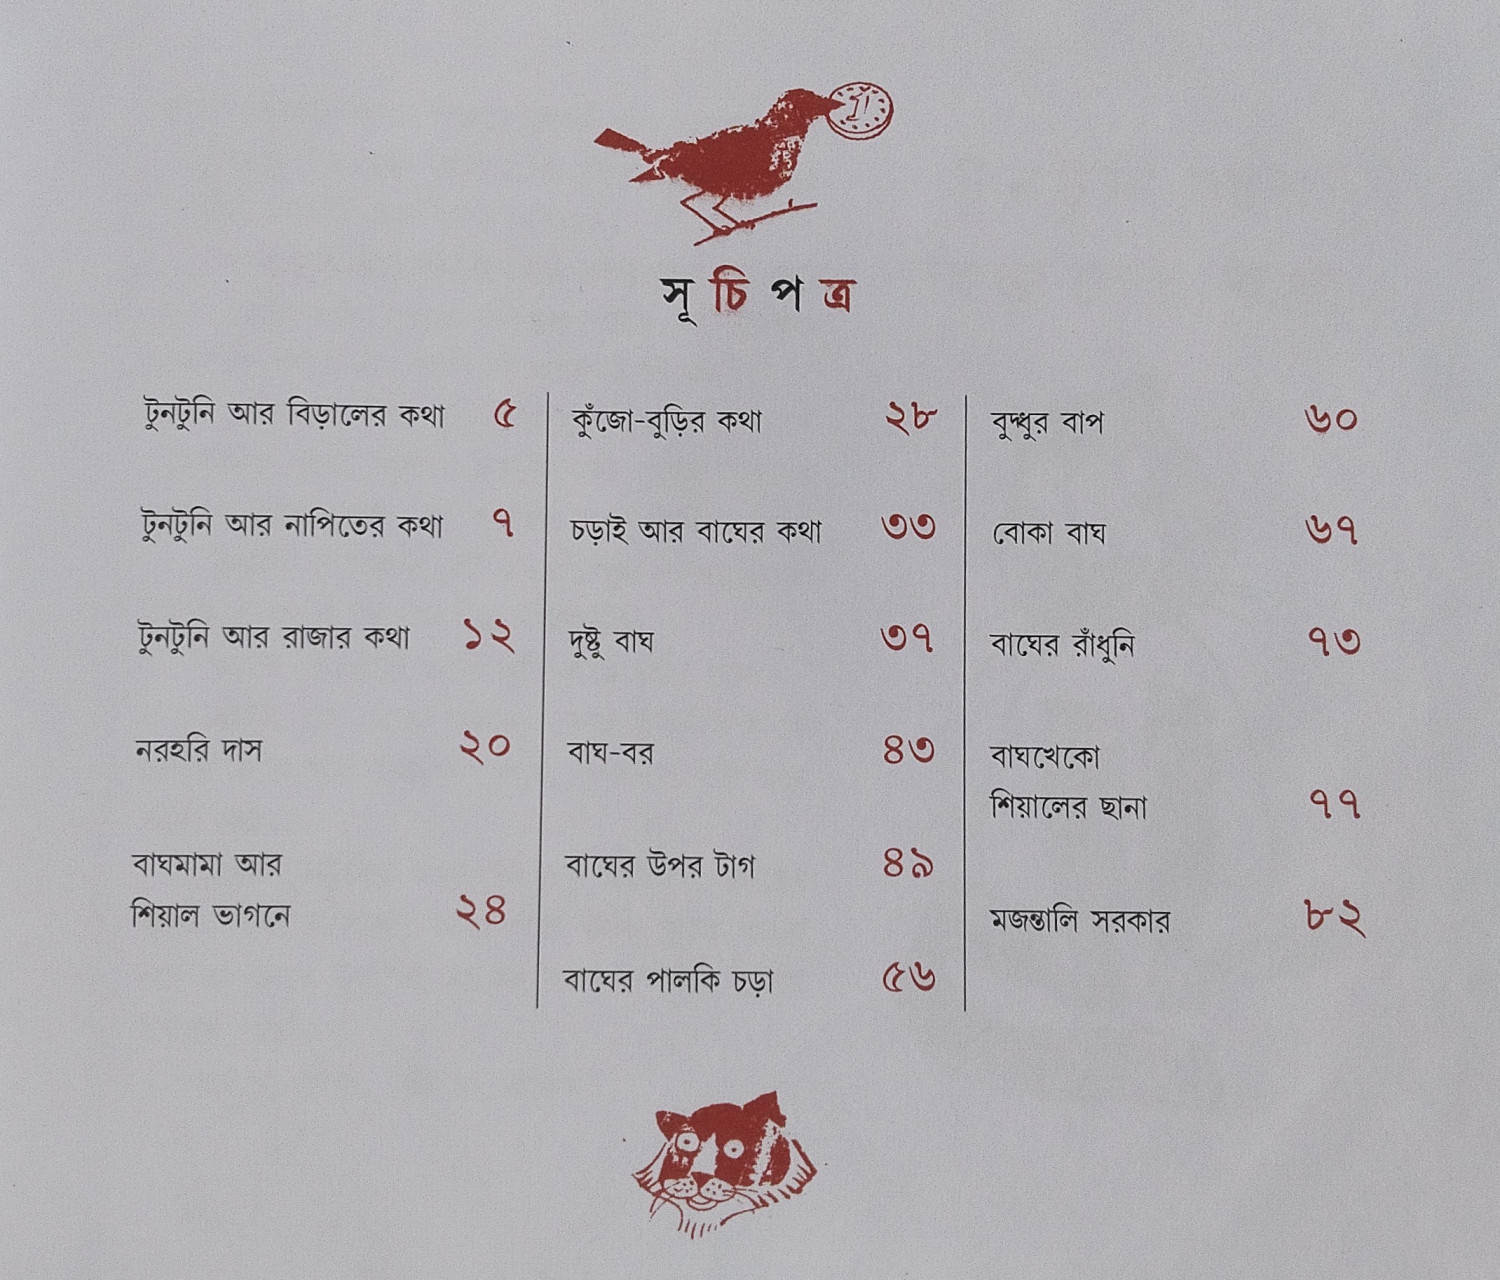 সূচিপত্র
টুনটুনি আর বিড়ালের কথা ৫
টুনটুনি আর নাপিতের কথা ৭
টুনটুনি আর রাজার কথা ১২
নরহরি দাস ২০
বাঘমামা আর
শিয়াল ভাগনে ২৪
কুঁজো-বুড়ির কথা ২৮
চড়াই আর বাঘের কথা ৩৩
দুষ্টু বাঘ ৩৭
বাঘ-বর ৪৩
বাঘের উপর টাগ ৪৯
বাঘের পালকি চড়া ৫৬
বুদ্ধুর বাপ ৬০
বোকা বাঘ ৬৭
বাঘের রাঁধুনি ৭৩
বাঘখেকো
শিয়ালের ছানা ৭৭
মজন্তালি সরকার ৮২